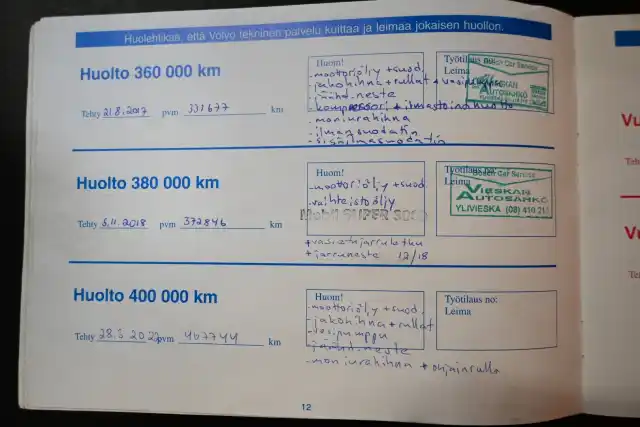 Huolehtikaa, että Volvo tekninen palvelu kuittaa ja leimaa jokaisen huollon.
Huolto 360 000 km
Tehty 21.8.2017 pvm 331677 km
Huom!
-moottoriöljy +suod.
-jakohihna + rullat + vesipumppu
-jäähd.neste
-kompressori + ilmastoinnin
-moniurahihna
-ilmansuodatin
-sisäilmasuodatin
Työtilaus
Leima
Bosch Car Service
VIESKAN
AUTOSÄHKÖ
Huolto 380 000 km
Tehty 5.11.2018 pvm 372846 km
Huom!
-moottoriöljy +suod.
-vaihteistoöljy
Mobil SUPER 3000
+vasen etujarruletku
+jarruneste 12/18
Työtilaus no:
Leima
Bosch Car Service
VIESKAN
AUTOSÄHKÖ
YLIVIESKA (08) 410
Huolto 400 000 km
Tehty 28.3 2022 pvm 407744 km
Huom!
-moottoriöljy +suod.
-jakohihna + rullat
-vesipumppu
-jäähd.neste
-moniurahihna + ohjainrulla
Työtilaus no:
Leima
12
Vu
Teh
V
Te